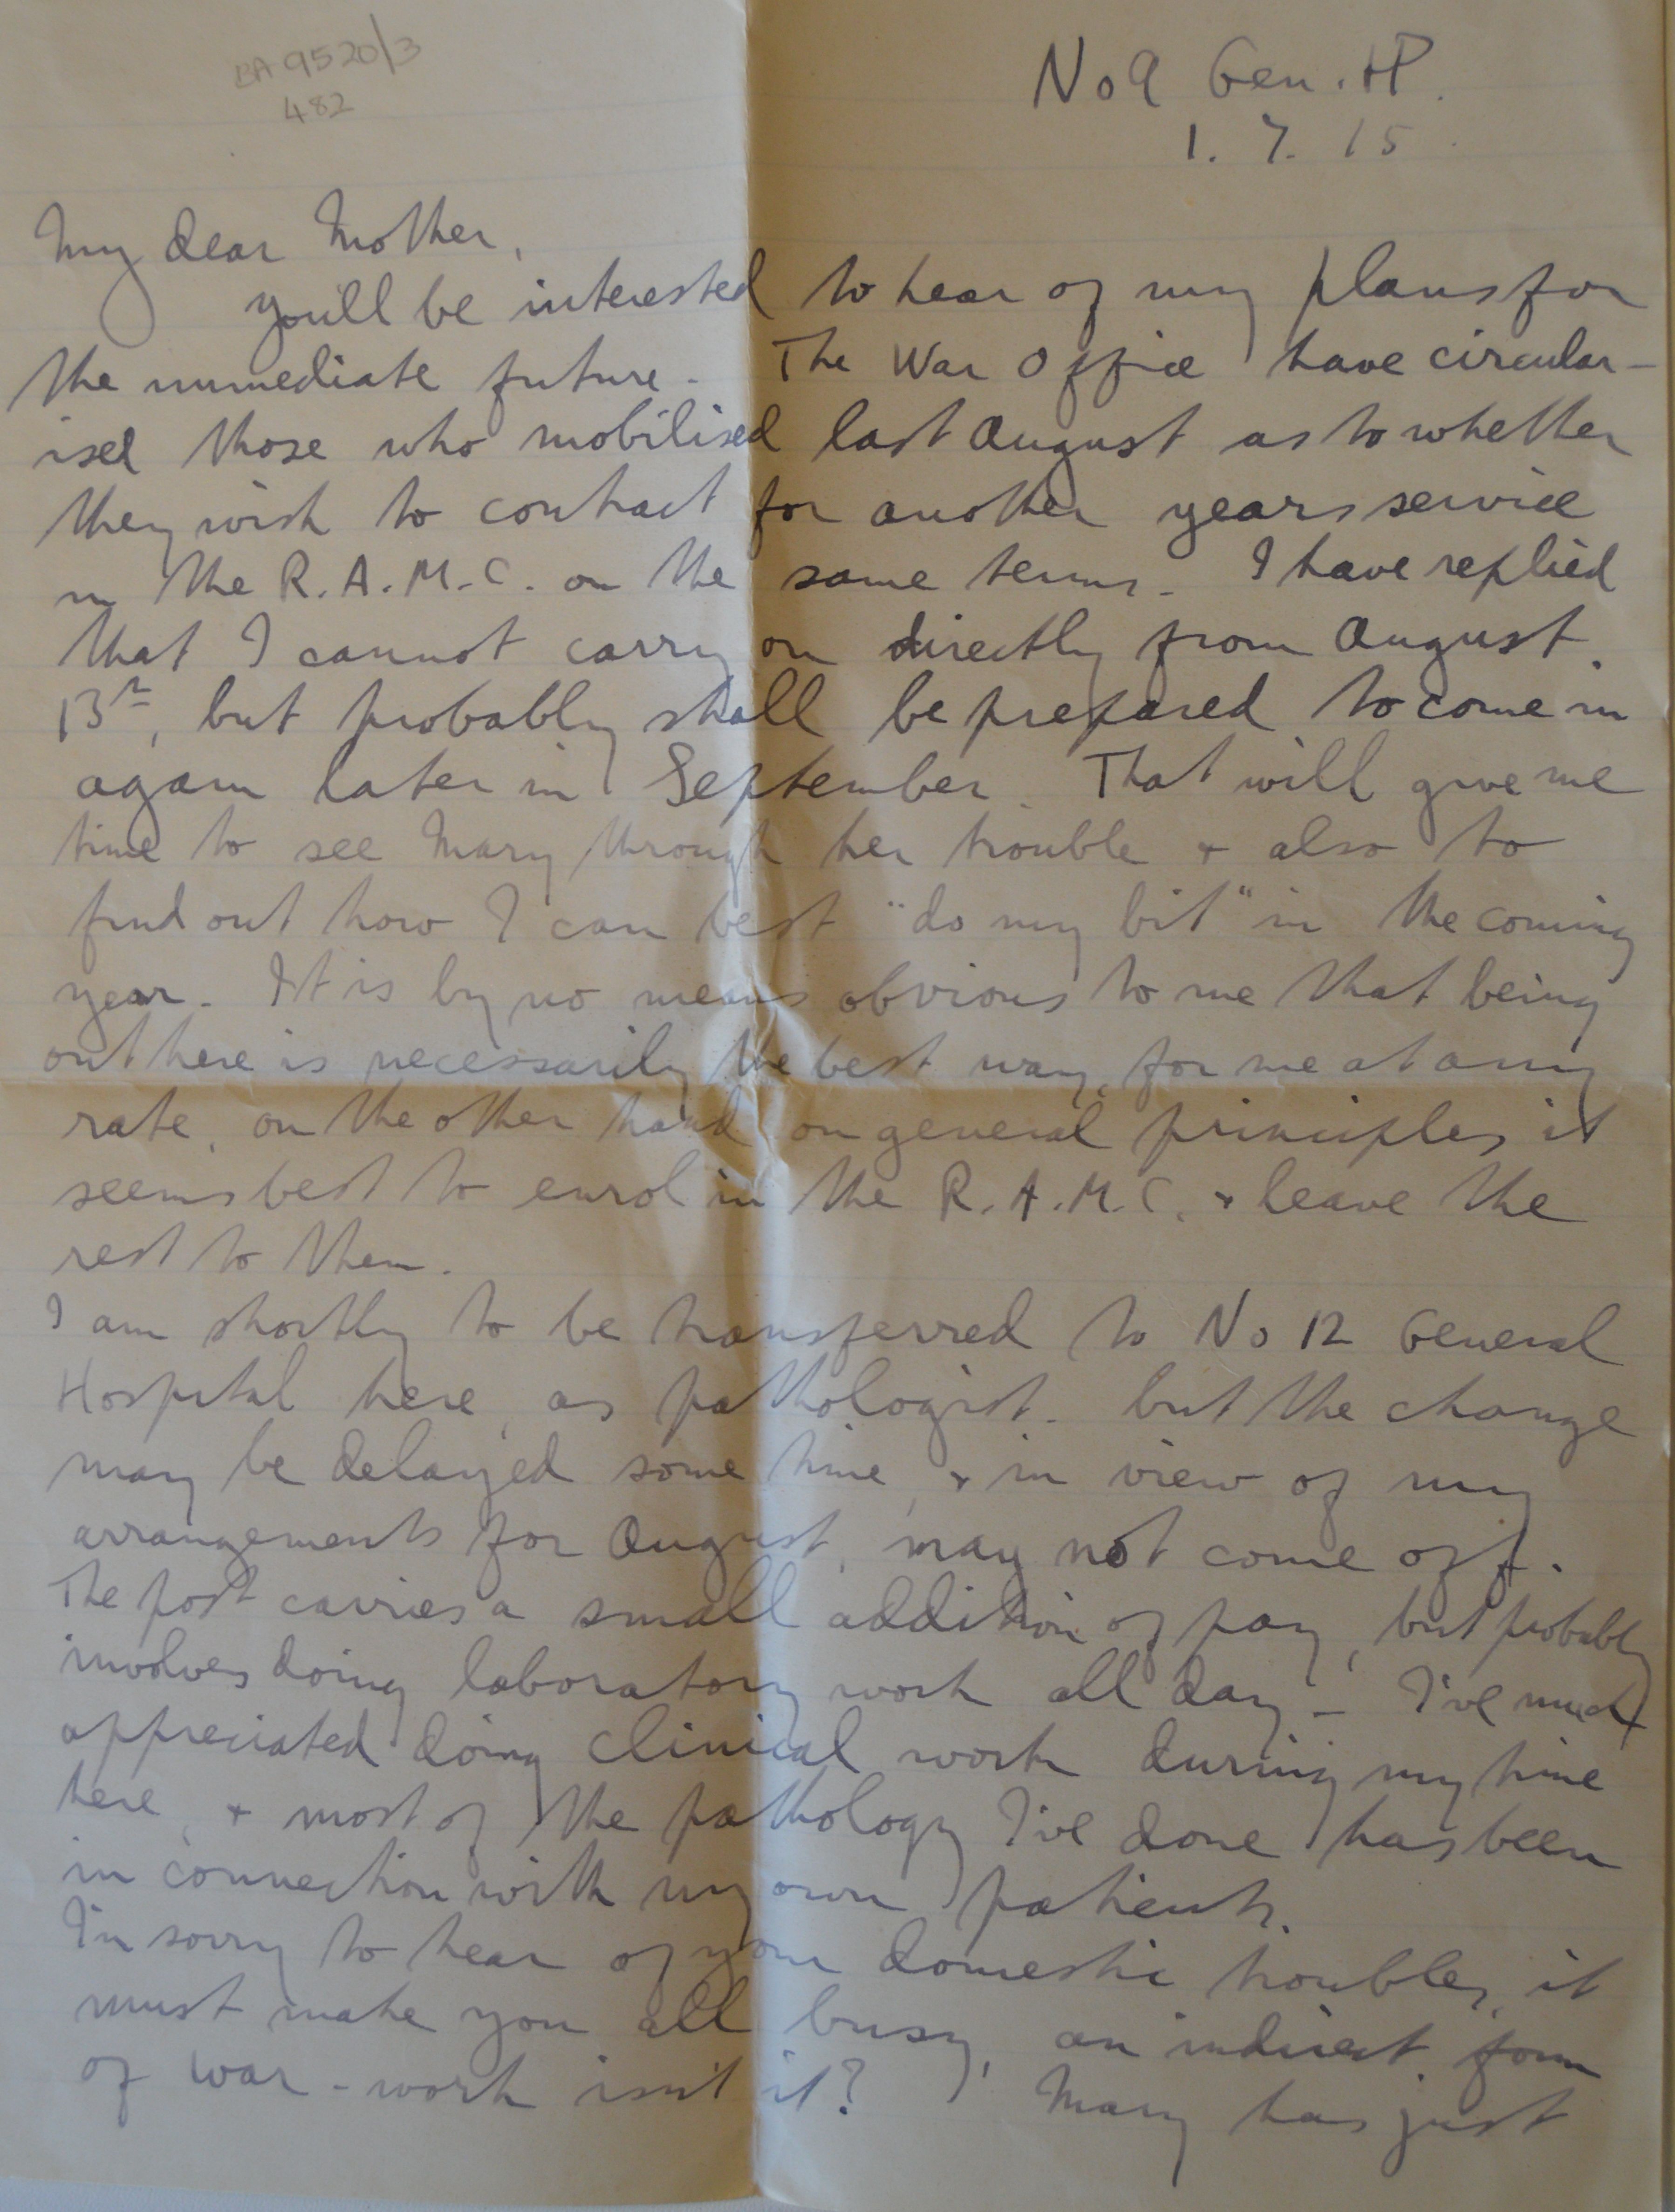 BA 9520/3
482
No 9 Gen. H.
1. 7. 15
My dear Mother,
you'll be interested to hear of my plans for
the immediate future. The War Office have circular-
ised those who mobilised last August as to whether
they wish to contract for another years service
in the R.A.M.C. on the same terms. I have replied
that I cannot carry on directly from August
13th, but probably shall be prepared to come in
again later in September. That will give me
time to see Mary through her trouble + also to
find out how I can best "do my bit" in the coming
year. It is by no means obvious to me that being
out here is necessarily the best way, for me at any
rate, on the other hand on general principles it
seems best to enrol in the R.A.M.C. + leave the
rest to them.
I am shortly to be transferred to No 12 General
Hospital here, as pathologist. but the change
may be delayed some time, + in view of my
arrangements for August, may not come off.
The post carries a small addition of pay, but probably
involves doing laboratory work all day - I've much
appreciated doing clinical work during my time
here, + most of the pathology I've done has been
in connection with my own patients.
I'm sorry to hear of your domestic troubles, it
must make you all busy, an indirect form
of war-work isn't it? Mary has just